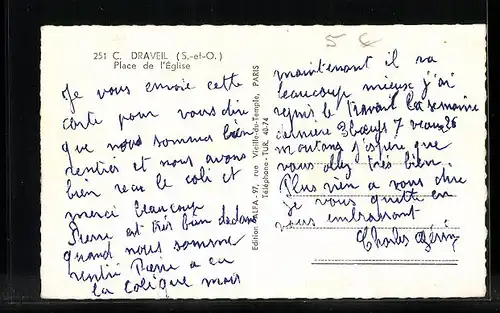 251 C. DRAVEIL (S.-et-O.)
Place de l'Église
Je vous envoie cette
carte pour vous dire
que nous somme bien
rentrés et nous avons
bien recu le coli et
merci beaucoup
Pierre est très bien dedans
quand nous somme
rentré Pierre a eu
la colique mais
Edition ALFA - 97, rue Vieille-du-Temple, PARIS
Téléphone - TUR. 40-74
5 €
maintenant il va
beaucoup mieux j'ai
repris le travail la semaine
derniere 3 bœufs 7 veaux 26
moutons j'espère que
vous allez très bien.
Plus rien a vous dire
je vous quitte en
vous embrassant
Charles